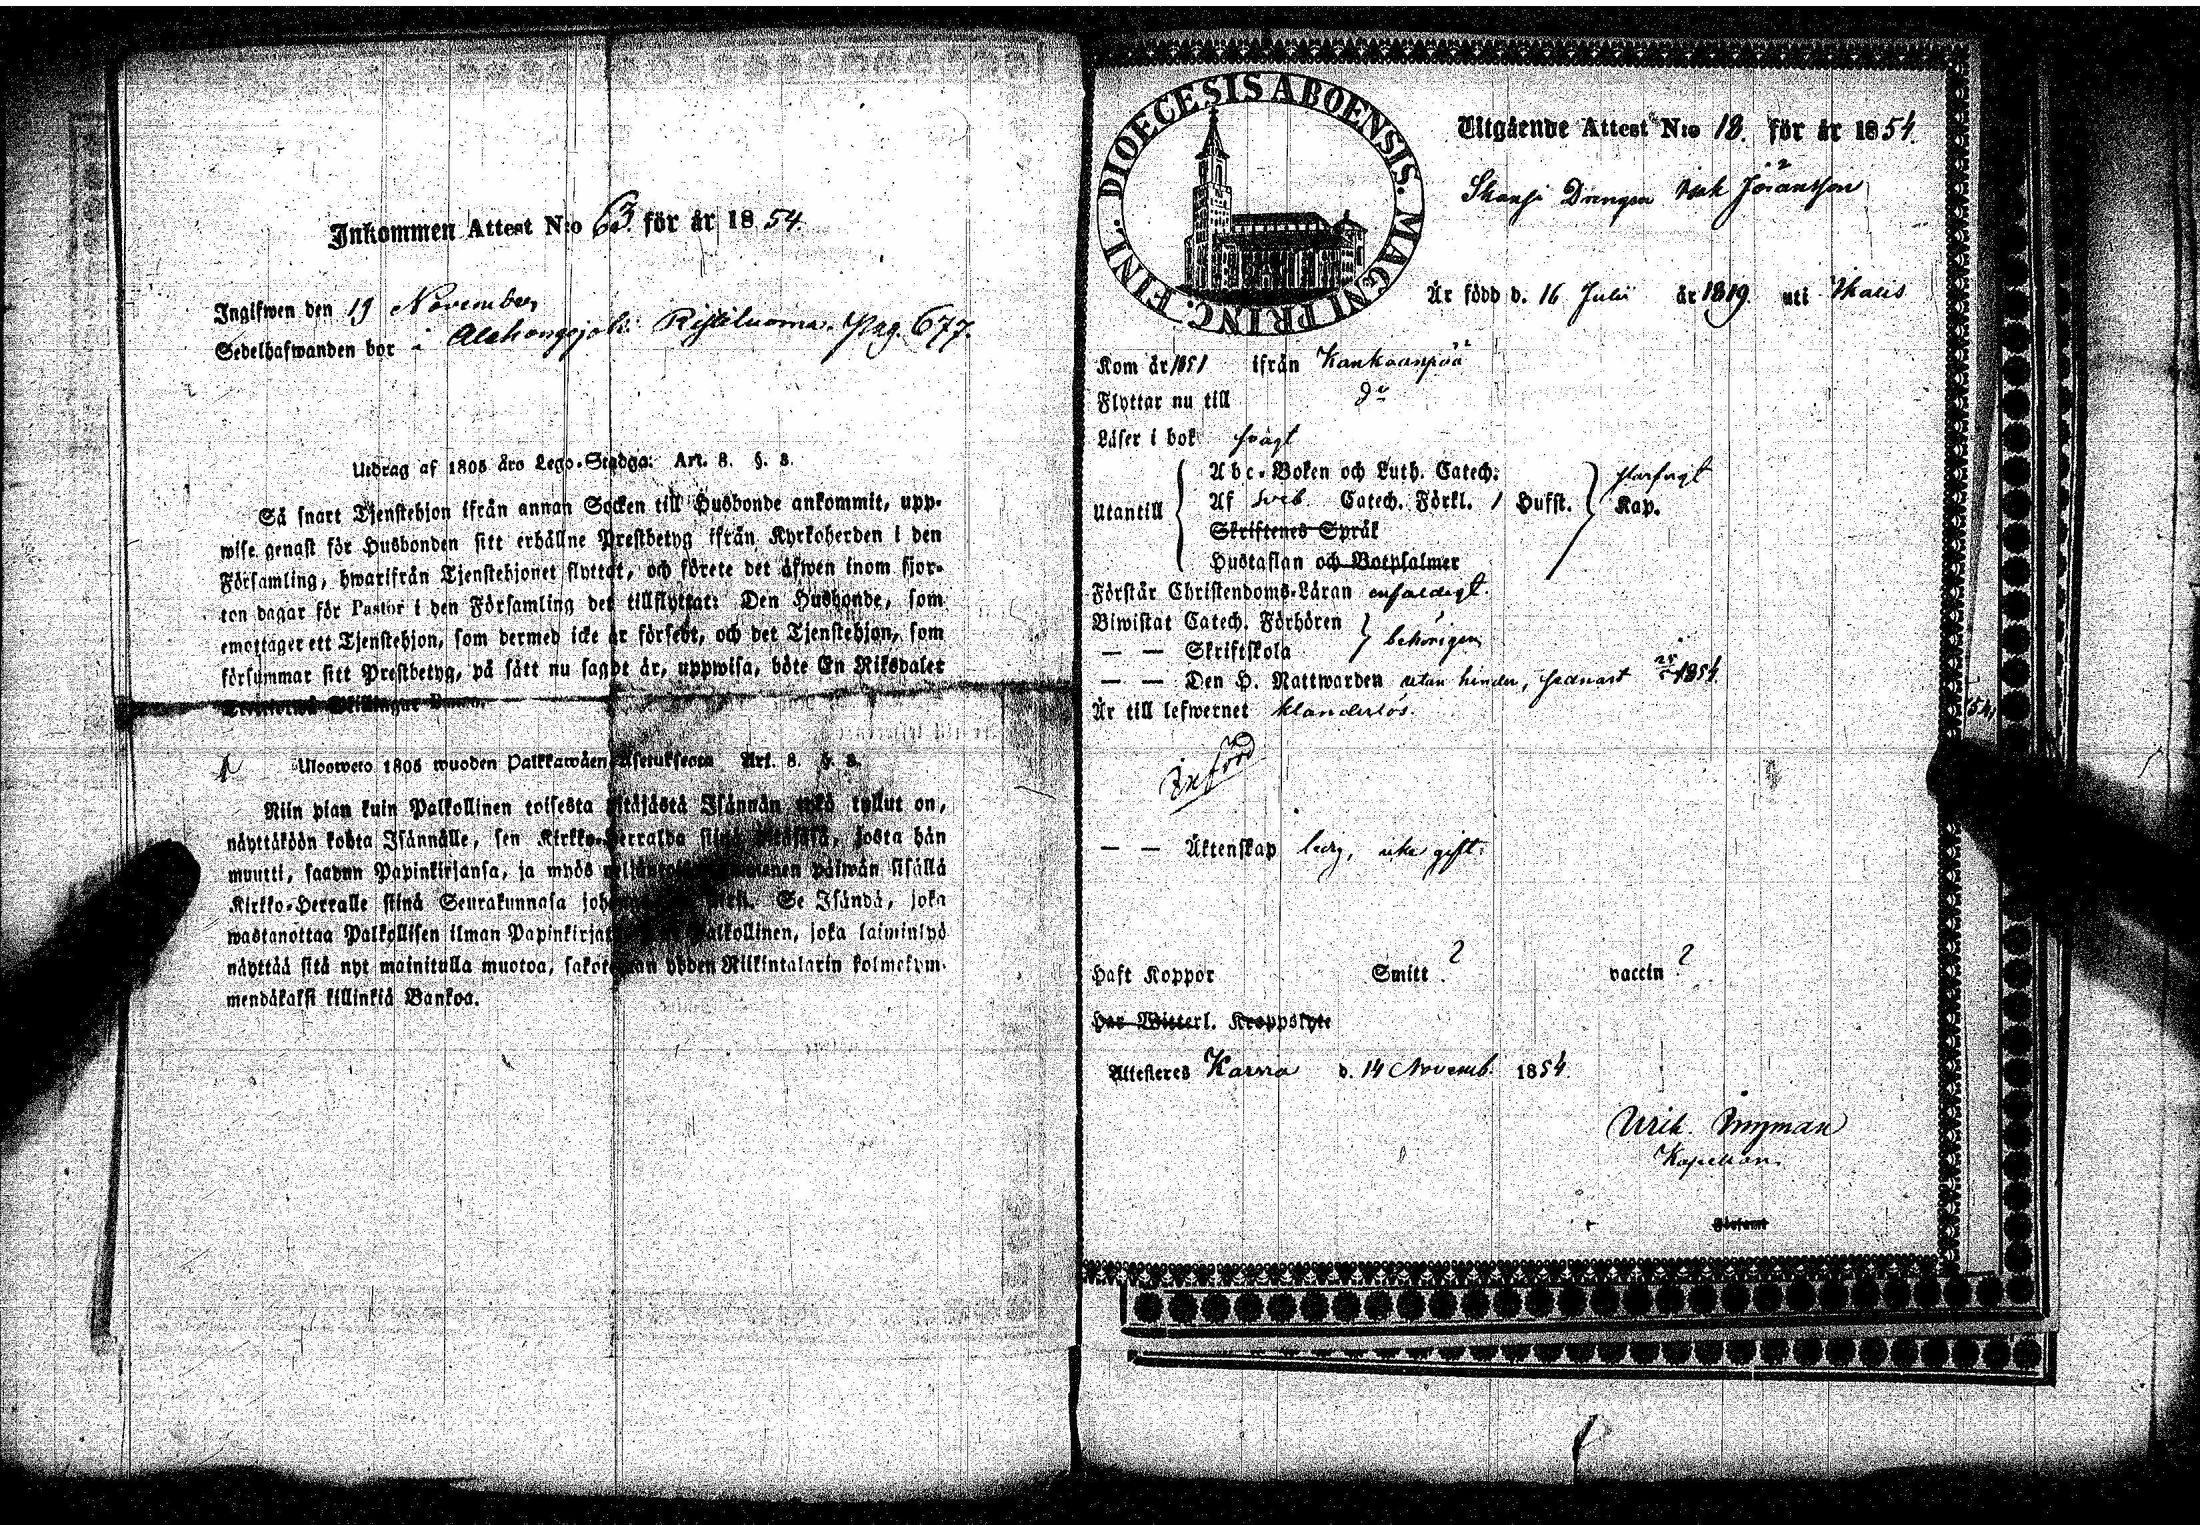 Inkommen Attest N:o 63 för år 1854.
Ingifwen den 19 November
Sedelhafwanden bor i Alahongojoki Ristiluoma. Pag. 677.
Utdrag af 1805 års Lego-Stadga: Art. 8. §. 3.
Så snart Tjenstehjon ifrån annan Socken till Husbonde ankommit, upp-
wise genast för Husbonden sitt erhållne Prestbetyg ifrån Kyrkoherden i den
Församling, hwarifrån Tjenstehjonet flyttat, och förete det äfwen inom fjor-
ton dagar för Pastor i den Församling det tillflyttat: Den Husbonde, som
emottager ett Tjenstehjon, som dermed icke är försedt, och det Tjenstehjon, som
försummar sitt Prestbetyg, på sätt nu sagdt är, uppwisa, böte En Riksdaler
Trettiotwå Skillingar Banco.
Ulosweto 1805 wuoden Palkkawäen Asetuksesta Art. 8. §. 3.
Niin pian kuin Palkollinen toisesta pitäjästä Isännän tykö tullut on,
näyttäköön kohta Isännälle, sen Kirkko-Herralda siinä pitäjässä, josta hän
muutti, saadun Papinkirjansa, ja myös päiwän sisällä
Kirkko-Herralle siinä Seurakunnasa Se Isändä, joka
wastanottaa Palkollisen ilman Papinkirjata Palkollinen, joka laiminlyö
näyttää sitä nyt mainitulla muotoa, sakotetaan yhden Riikintalarin kolmekym-
mendäkaksi killinkiä Bankoa.
DIOECESIS ABOENSIS. MAGNI PRINC. FINL.
Utgående Attest N:o 18. för år 1854.
Drengen Isak Jöransson
Är född d. 16 Julii år 1819 uti Ikalis
Kom år 1851 ifrån Kankaanpää
Flyttar nu till do
Läser i bok swagt
Abc-Boken och Luth. Catech.
Utantill Af Sveb. Catech. Förkl. 1 Hufst. Kap.
Skriftenes Språk
Hustaflan och Botpsalmer
Förstår Christendoms-Läran enfaldigt.
Biwistat Catech. Förhören
— — Skriftskola behörigen
— — Den H. Nattwarden utan hinder, senast 1854
Är till lefwernet klanderlös.
Införd
— — Äktenskap ledig, icke gift.
Haft Koppor Smitt ? vaccin ?
Har Witterl. Kroppslyte
Attesteres Karvia d. 14 Novemb. 1854.
Ulrik Ingman
Kapellan.